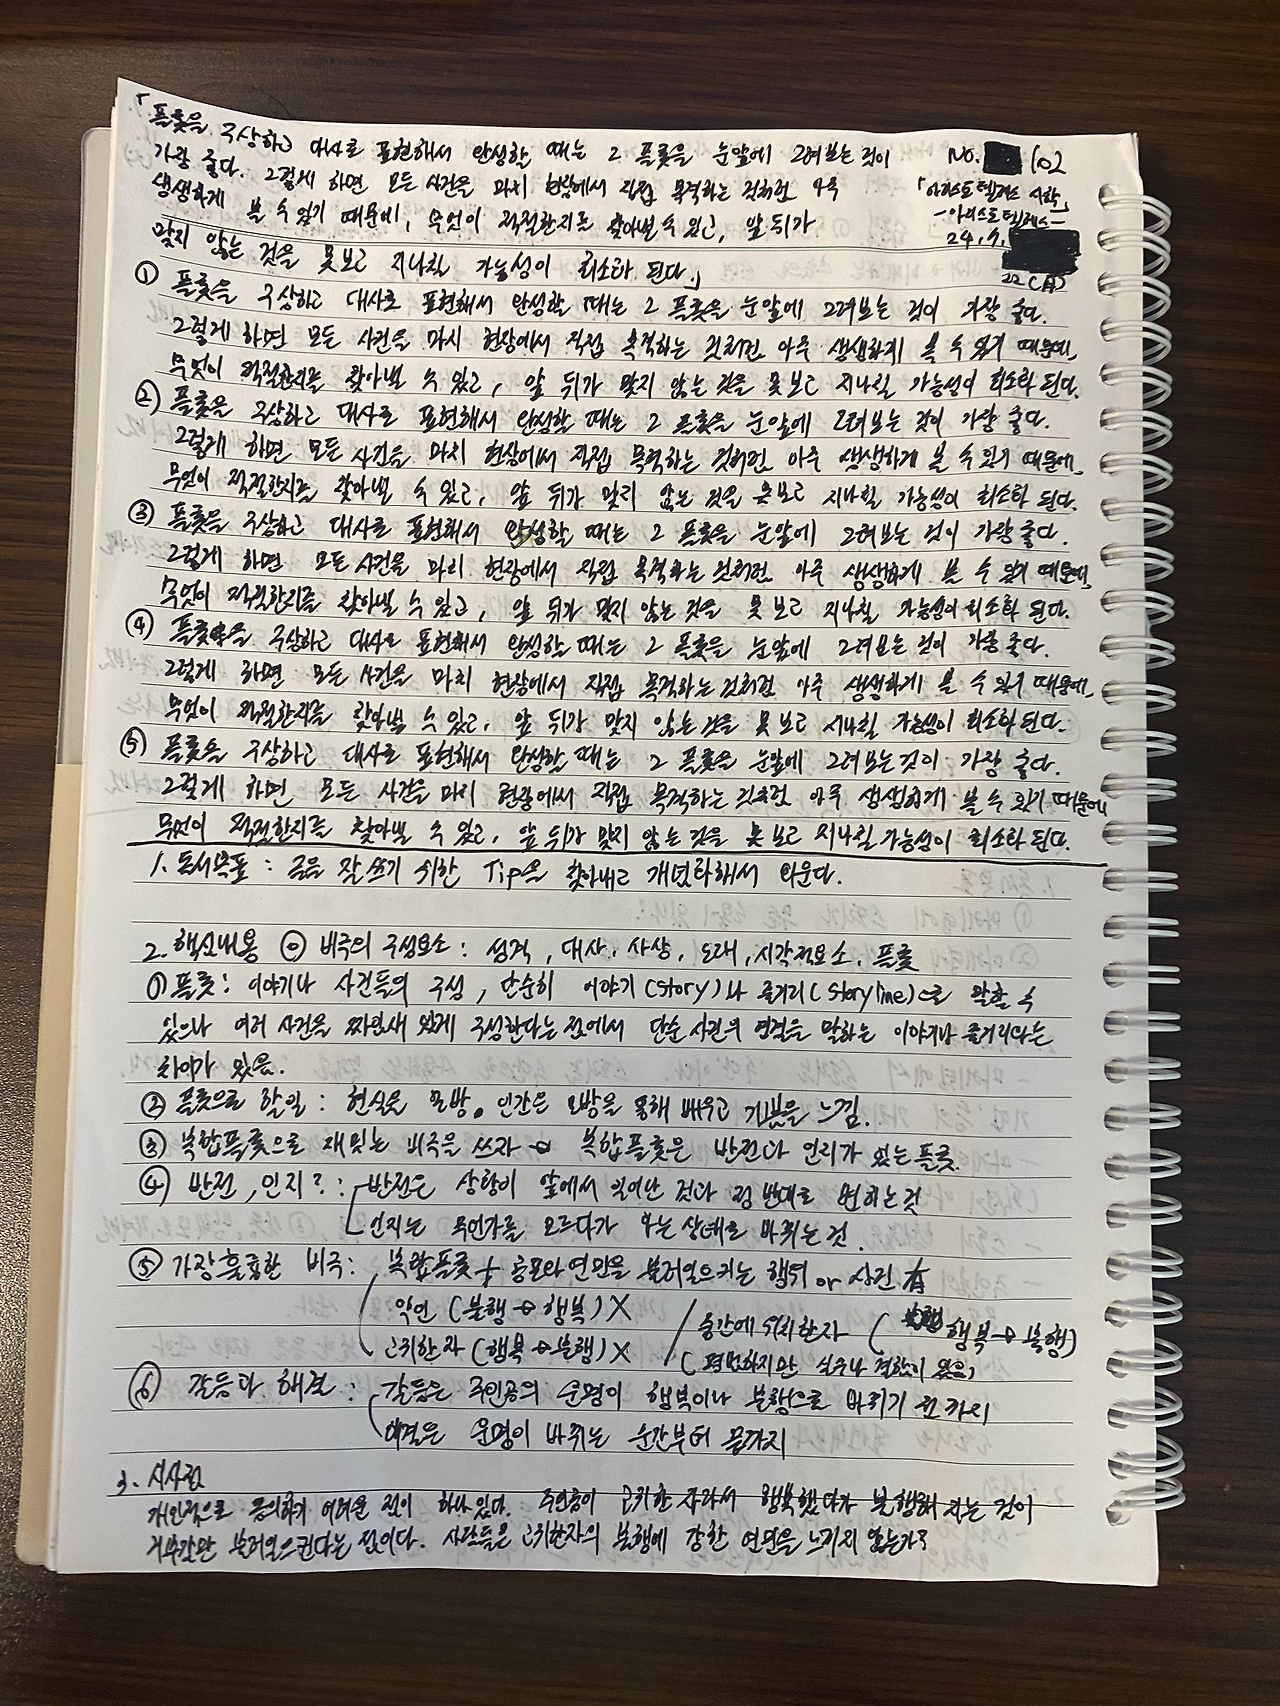 「플롯을 구상하고 대사로 표현해서 완성할 때는 그 플롯을 눈앞에 그려보는 것이
NO. 102
가장 좋다. 그렇게 하면 모든 사건을 마치 현장에서 직접 목격하는 것처럼 아주
「아리스토텔레스 시학」
생생하게 볼 수 있기 때문에, 무엇이 적절한지를 찾아낼 수 있고, 앞 뒤가
-아리스토텔레스-
24. 9.
맞지 않는 것을 못보고 지나칠 가능성이 최소화 된다」
22(日)
① 플롯을 구상하고 대사로 표현해서 완성할 때는 그 플롯을 눈앞에 그려보는 것이 가장 좋다.
그렇게 하면 모든 사건을 마치 현장에서 직접 목격하는 것처럼 아주 생생하게 볼 수 있기 때문에,
무엇이 적절한지를 찾아낼 수 있고, 앞 뒤가 맞지 않는 것을 못 보고 지나칠 가능성이 최소화 된다.
② 플롯을 구상하고 대사로 표현해서 완성할 때는 그 플롯을 눈앞에 그려보는 것이 가장 좋다.
그렇게 하면 모든 사건을 마치 현장에서 직접 목격하는 것처럼 아주 생생하게 볼 수 있기 때문에,
무엇이 적절한지를 찾아낼 수 있고, 앞 뒤가 맞지 않는 것을 못보고 지나칠 가능성이 최소화 된다.
③ 플롯을 구상하고 대사로 표현해서 완성할 때는 그 플롯을 눈앞에 그려보는 것이 가장 좋다.
그렇게 하면 모든 사건을 마치 현장에서 직접 목격하는 것처럼 아주 생생하게 볼 수 있기 때문에,
무엇이 적절한지를 찾아낼 수 있고, 앞 뒤가 맞지 않는 것을 못 보고 지나칠 가능성이 최소화 된다.
④ 플롯을 구상하고 대사로 표현해서 완성할 때는 그 플롯을 눈앞에 그려보는 것이 가장 좋다.
그렇게 하면 모든 사건을 마치 현장에서 직접 목격하는 것처럼 아주 생생하게 볼 수 있기 때문에,
무엇이 적절한지를 찾아낼 수 있고, 앞 뒤가 맞지 않는 것을 못 보고 지나칠 가능성이 최소화 된다.
⑤ 플롯을 구상하고 대사로 표현해서 완성할 때는 그 플롯을 눈앞에 그려보는 것이 가장 좋다.
그렇게 하면 모든 사건을 마치 현장에서 직접 목격하는 것처럼 아주 생생하게 볼 수 있기 때문에
무엇이 적절한지를 찾아낼 수 있고, 앞 뒤가 맞지 않는 것을 못 보고 지나칠 가능성이 최소화 된다.
1. 독서목표 : 글을 잘 쓰기 위한 Tip을 찾아내고 개념화해서 외운다.
2. 핵심내용 ⓪ 비극의 구성요소 : 성격, 대사, 사상, 노래, 시각적요소, 플롯
① 플롯 : 이야기나 사건들의 구성, 단순히 이야기(story)나 줄거리(storyline)으로 말할 수
있으나 여러 사건을 짜임새 있게 구성한다는 점에서 단순 사건의 연결을 말하는 이야기나 줄거리와는
차이가 있음.
② 플롯으로 할일 : 현실을 모방. 인간은 모방을 통해 배우고 기쁨을 느낌.
③ 복합플롯으로 재밌는 비극을 쓰자 → 복합플롯은 반전과 인지가 있는 플롯.
④ 반전, 인지? : 반전은 상황이 앞에서 일어난 것과 정 반대로 변하는 것
인지는 무언가를 모르다가 아는 상태로 바뀌는 것.
⑤ 가장 훌륭한 비극 : 복합플롯 + 공포와 연민을 불러일으키는 행위 or 사건 有
악인 (불행 → 행복) X
중간에 위치한자 ( 행복 → 불행)
고귀한 자 (행복 → 불행) X
(평범하지만 실수나 결함이 있음)
⑥ 갈등과 해결 : 갈등은 주인공의 운명이 행복이나 불행으로 바뀌기 전까지
해결은 운명이 바뀌는 순간부터 끝까지
3. 시사점
개인적으로 동의하기 어려운 점이 하나 있다. 주인공이 고귀한 자라서 행복했다가 불행해 지는 것이
거부감만 불러일으킨다는 점이다. 사람들은 고귀한자의 불행에 강한 연민을 느끼지 않는가?